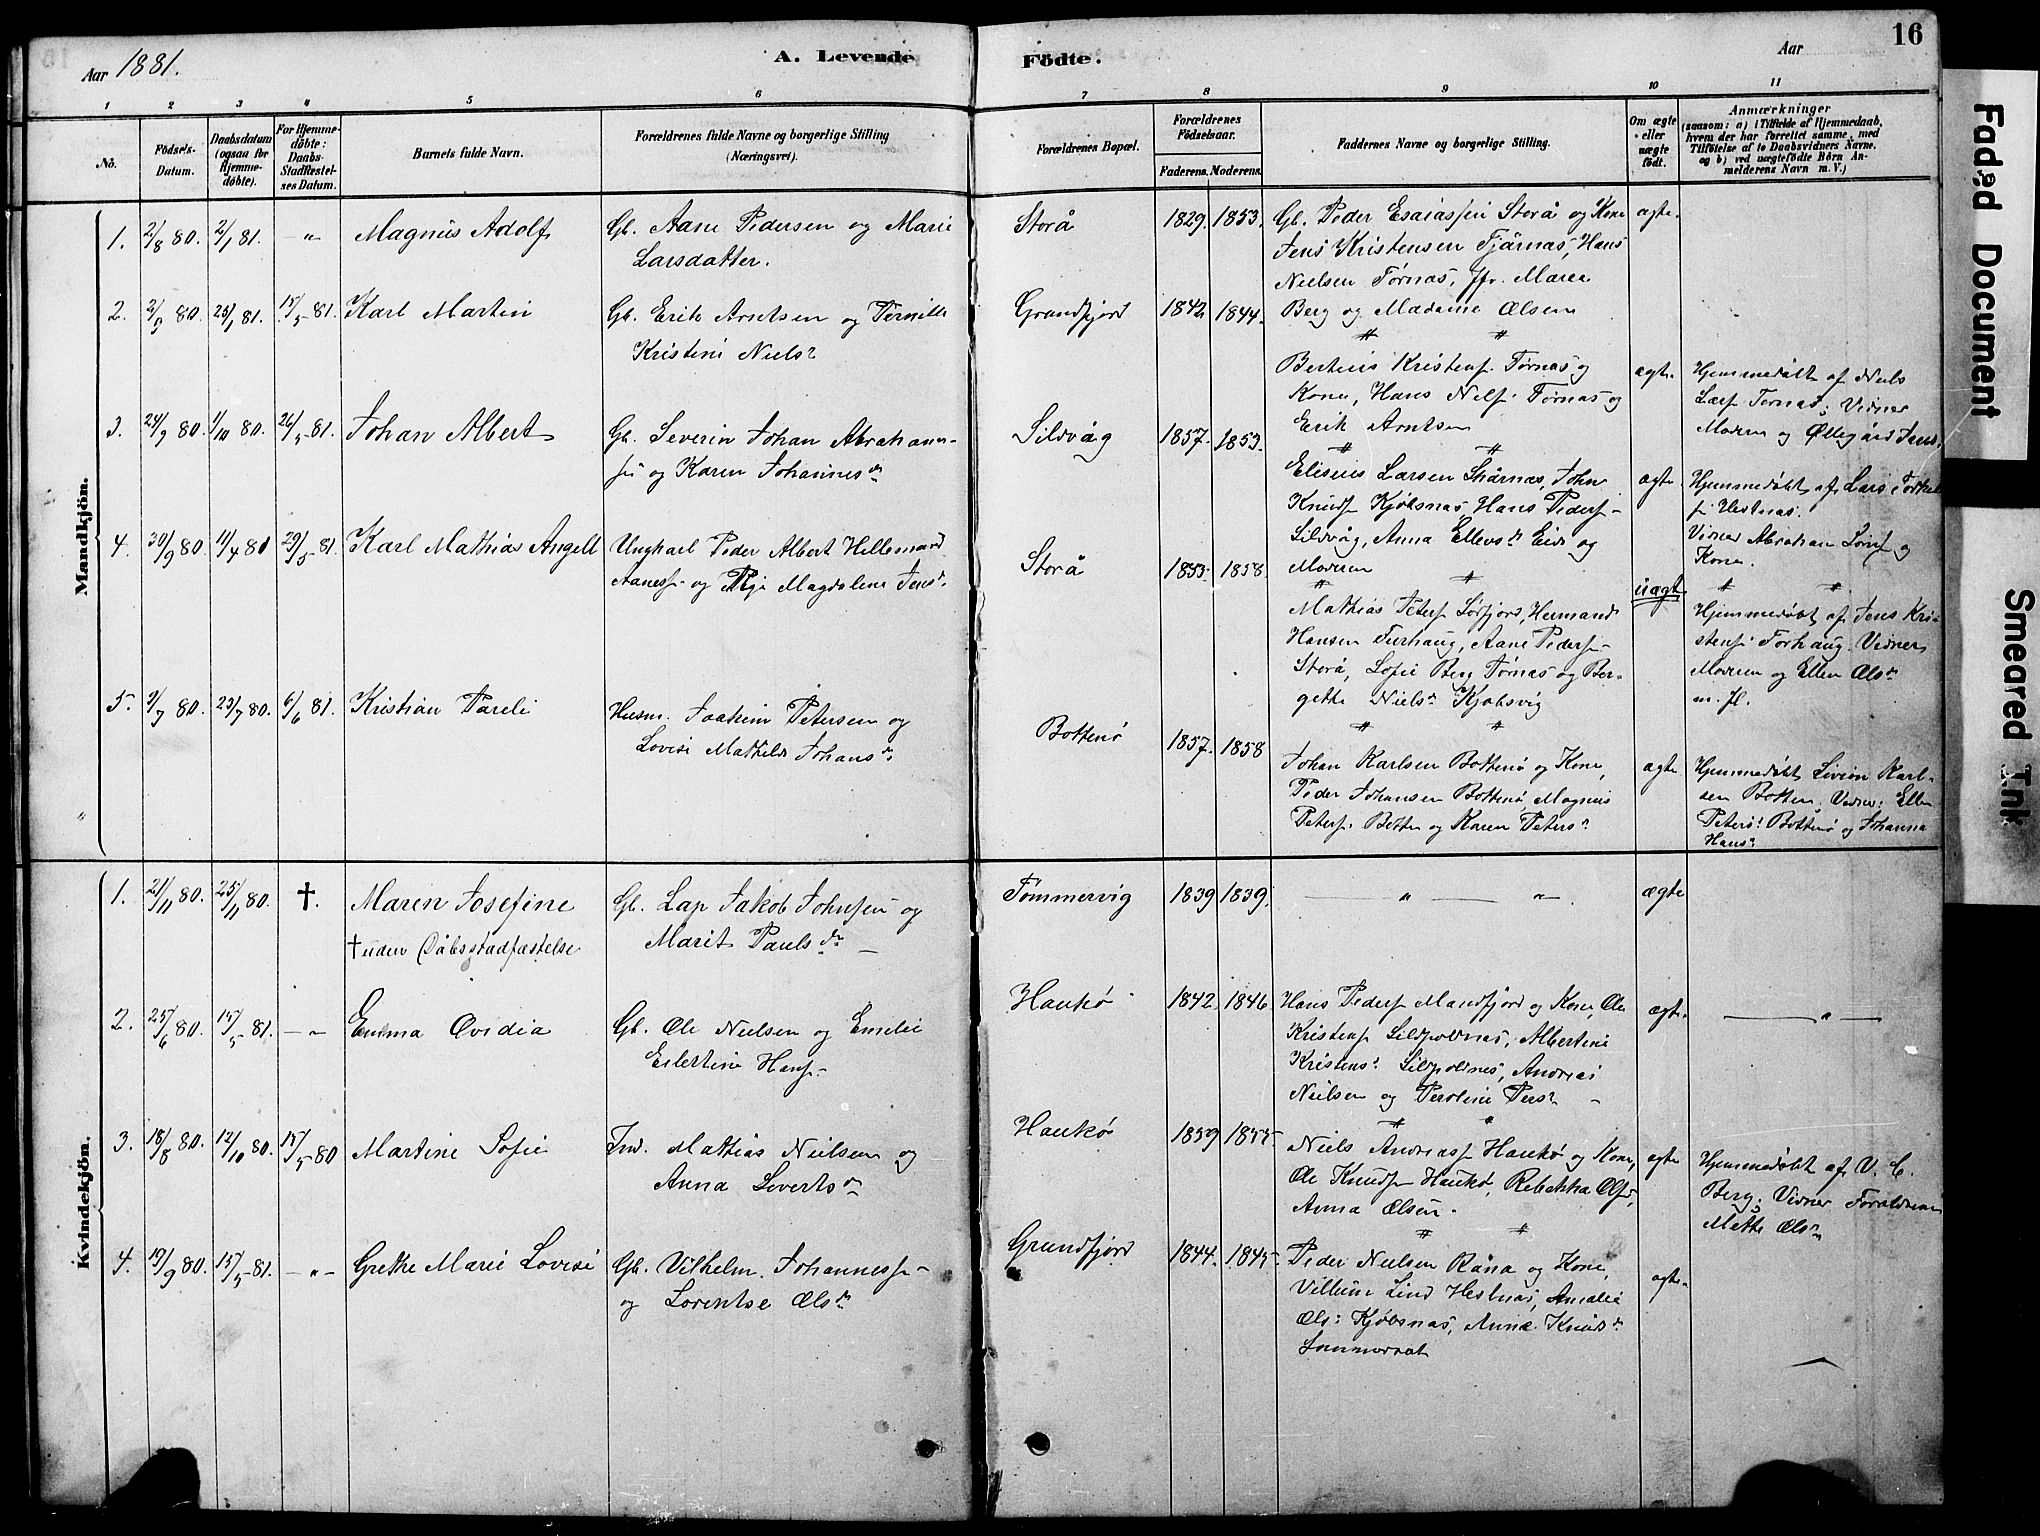 Aar 1881.
A. Levende
Födte.
Aar
16
1
2
3
4
5
6
7
8
9
10
11
No.
Födsels-
Datum.
Daabsdatum
(ogsaa for
Hjemme-
døbte).
For Hjemme-
døbte:
Daabs-
Stadfæstel-
ses Datum.
Barnets fulde Navn.
Forældrenes fulde Navne og borgerlige Stilling
(Næringsvei).
Forældrenes Bopæl.
Forældrenes
Födselsaar.
Faderens. Moderens.
Faddernes Navne og borgerlige Stilling.
Om ægte
eller
uægte
født.
Anmærkninger
(saasom: a) i Tilfælde af Hjemmedaab,
hvem der har forrettet samme, med
Tilföielse af to Daabsvidners Navne.
og b) ved uægtefödte Börn An-
melderens Navn m. V.)
Mandkjön.
1. 2/8 80. 2/1 81. - " Magnus Adolf
Gb. Aane Pedersen og Marie
Larsdatter.
Storå 1829. 1853.
Gb. Peder Esaiassen Storå og Kone
Jens Kristensen Tjårnas, Hans
Nielsen Tørnas, Jfr. Maren
Berg og Madame Olsen
ægte.
2. 2/9 80. 23/1 81. 15/5 81. Karl Martin
Gb. Erik Arntsen og Pernille
Kristine Niels
Grundfjord 1842 1844.
Bertius Kristens. Tørnas og
Kone, Hans Nels. Tørnas og
Erik Arntsen
ægte.
Hjemmedøbt af Niels
Lars. Tornas; Vidner
Moderen og Øllegård Jens.
3. 24/9 80. 1/10 80. 26/5 81. Johan Albert
Gb. Severin Johan Abraham-
sen og Karen Johannesdr
Sildvåg 1857. 1853.
Eliseus Larsen Skårnas, John
Knuds. Kjøbsnas, Hans Peders.
Sildvåg, Anna Ellevsdr Eide og
Moderen
ægte
Hjemmedøbt af Lars
Hestnas.
Vidner Abraham og
Kone.
4. 30/9 80. 11/4 81 29/5 81. Karl Mathias Angell
Ungkarl Peder Albert Hillemand
Aaness. og Pige Magdalene Jensdr
Storå 1853. 1858.
Mathias Peters. Sørfjord, Hermand
Hansen Furhaug, Aane Peders.
Storå, Sofie Berg Tørnas og Ber-
gette Nielsdr Kjobsvig
uægte
Hjemmedøbt af Jens Kri-
stens. Forhaug. Vidner
Moderen og Ellen Olsdr
m. fl.
5. 9/7 80. 25/7 80. 6/6 81. Kristian Pareli
Husm. Joakim Petersen og
Lovise Mathilde Johansdr
Bottenø 1857. 1858
Johan Karlsen Bottenø og Kone,
Peder Johansen Bottenø, Magnus
Peters. Botten og Karen Peters
ægte
Hjemmedøbt Karl-
sen Botten; Vidner: Ellen
Peters Bottenø og Johanna
Hans
Kvindekjön.
1. 21/11 80. 25/11 80. †. Maren Josefine
† uden Dåbsstadfæstelse
Gb. Lap Jakob Johnsen og
Marit Paulsdr
Tömmervig 1839 1839.
" "
ægte
2. 25/6 80. 15/5 81. - " Emma Ovidia
Gb. Ole Nielsen og Emelie
Eilertine Hans.
Haukø 1842 1846
Hans Peders. Mandfjord og Kone, Ole
Kristens. Sildpolnas, Albertine
Kristens. Sildpolnes, Andreas
Nielsen og Peroline Pers
ægte.
"
3. 18/8 80. 12/10 80. 15/5 80 Martine Sofie
Ind. Mattias Nielsen og
Anna Sivertsdr
Haukø 1859 1855.
Niels Andreass. Haukø og Kone,
Ole Knuds. Haukø, Rebekka Ols.
Anna Olsen.
ægte
Hjemmedøbt af V. C.
Berg; Vidner Forældrene
Mette Olsdr
4. 19/9 80. 15/5 81. - " - Grethe Marie Lovise
Gb. Vilhelm Johanness.
og Lorentse Olsdr
Grundfjord 1844. 1845.
Peder Nielsen Råna og Kone,
Villum Lind Hestnas, Amalie
Ols: Kjøbsnas, Anne Knudsdr
Sommerset
ægte.
Faded Document
Smeared Ink